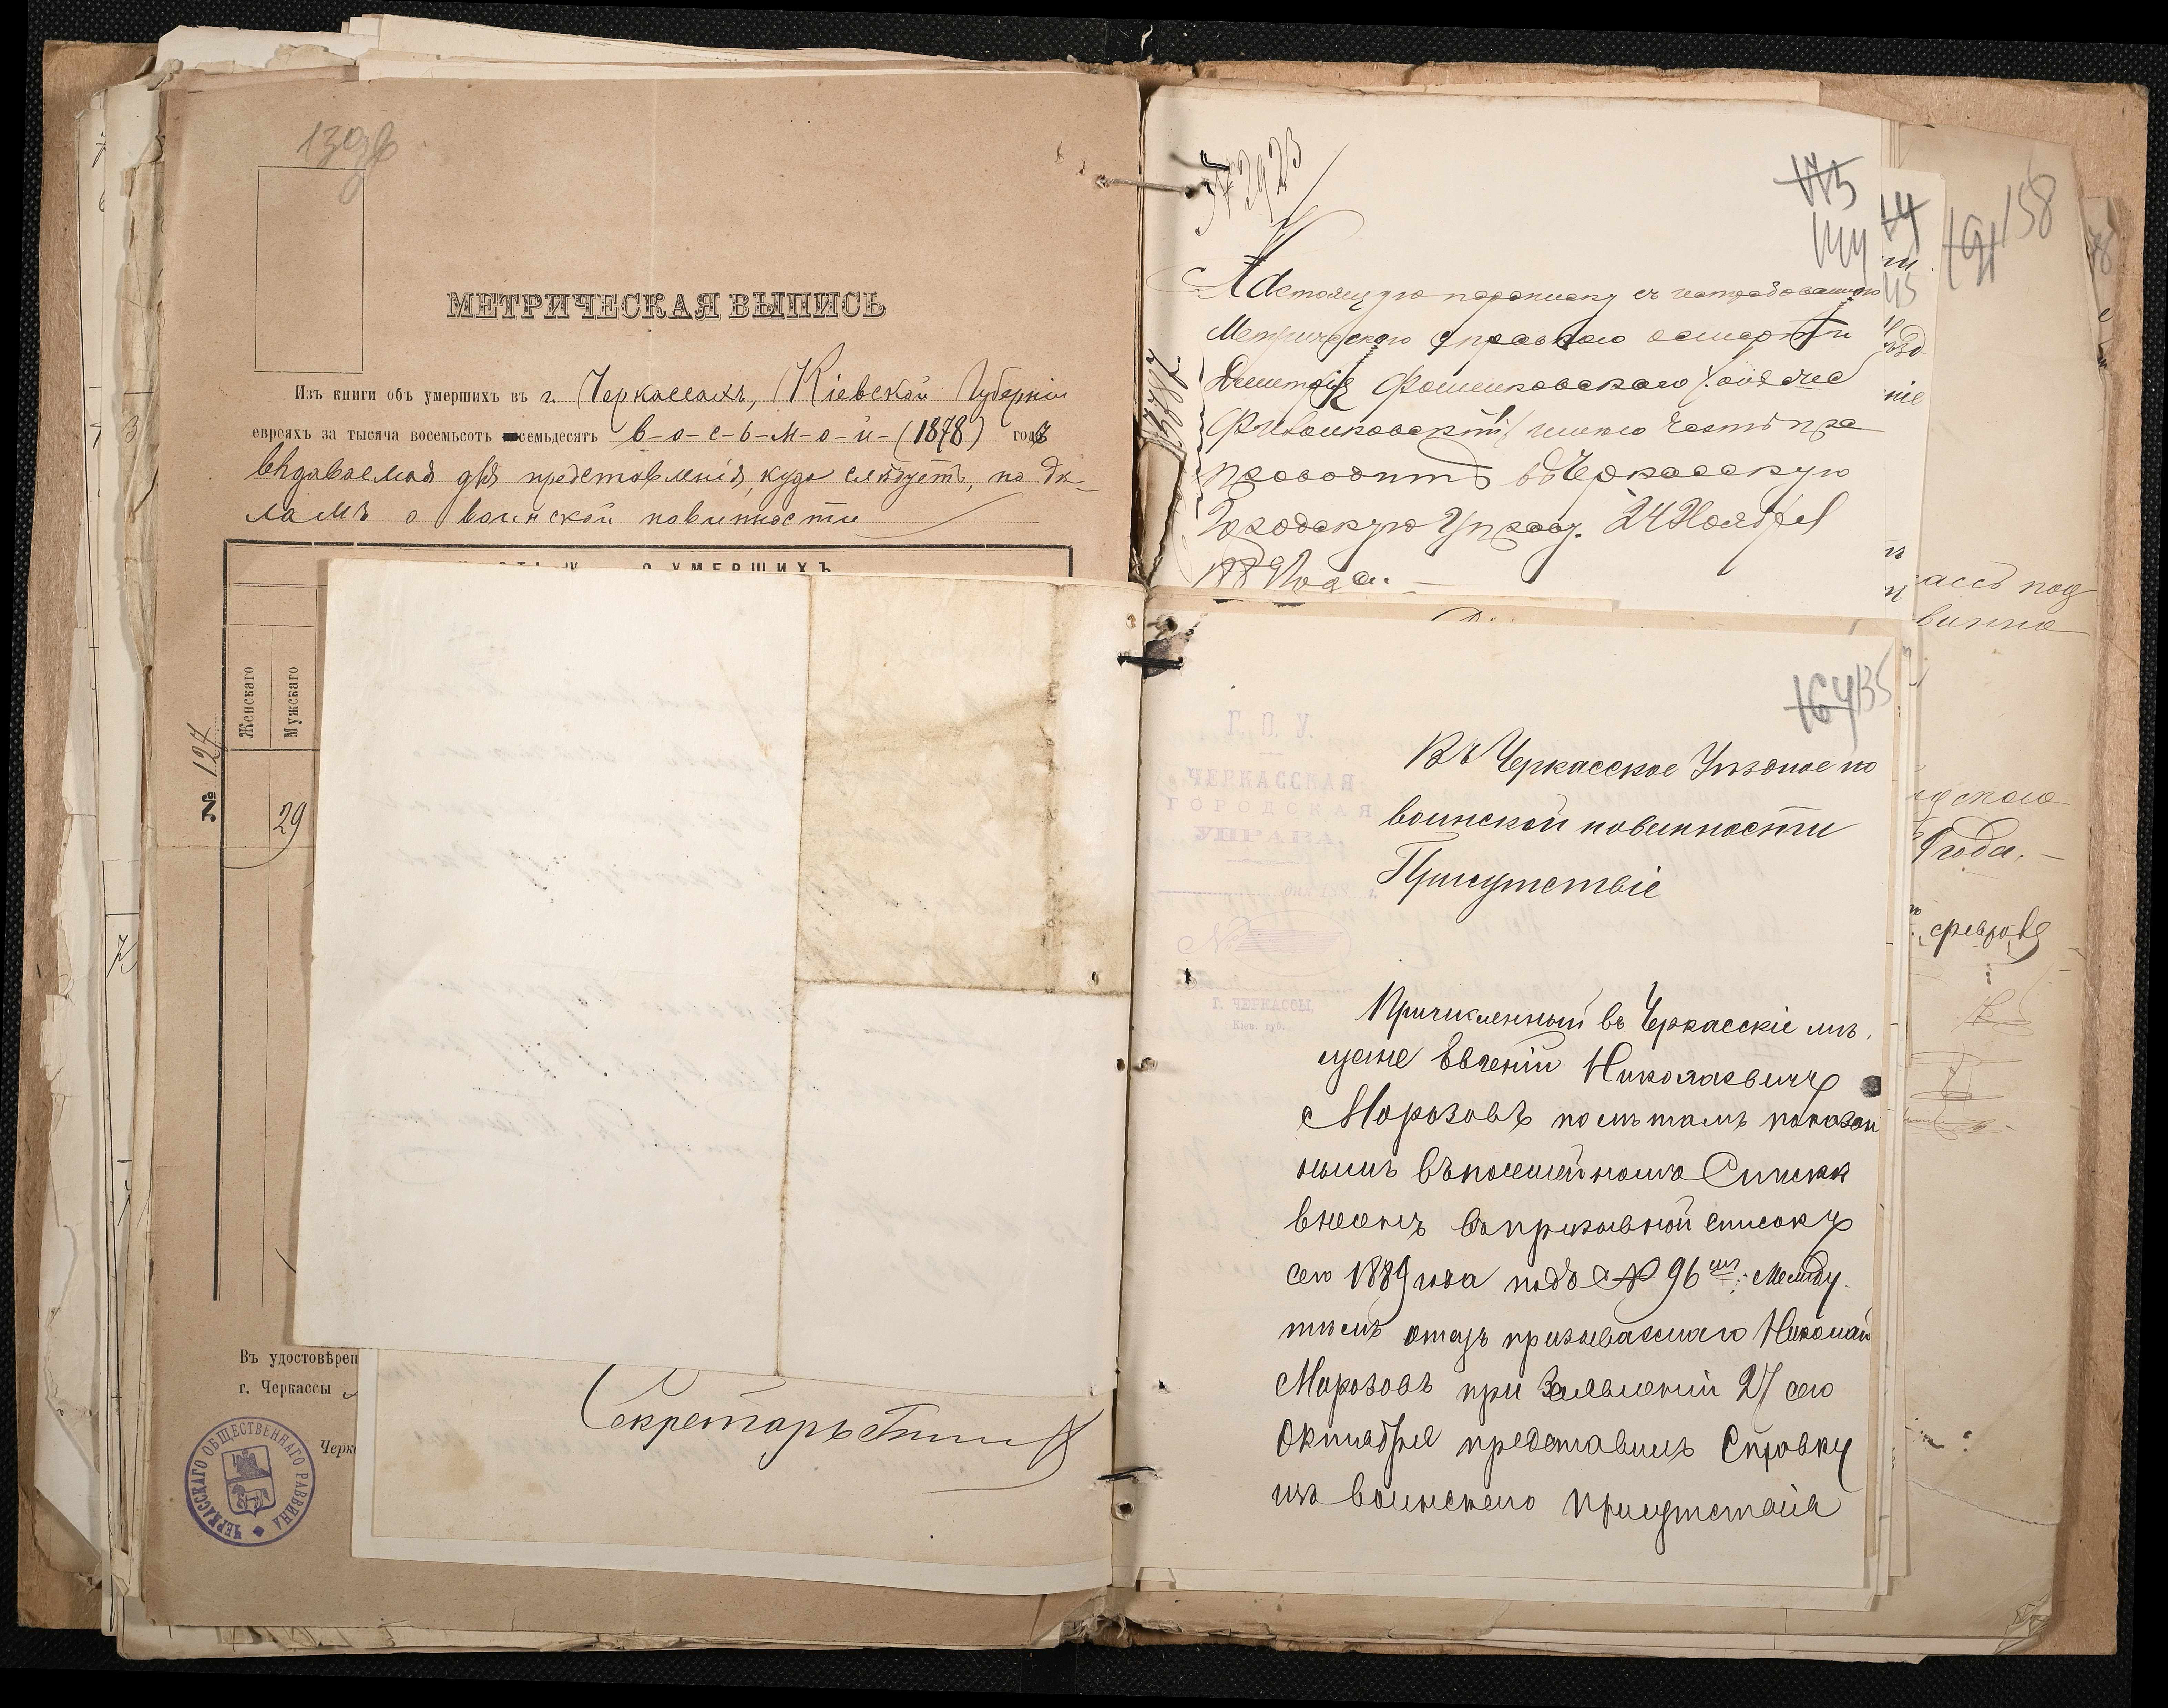 139б
МЕТРИЧЕСКАЯ ВЫПИСЬ
Изъ книги объ умершихъ въ г. Черкассахъ, Кіевской Губерніи
евреяхъ за тысяча восемьсотъ семьдесятъ в-о-с-ь-м-о-й-(1878) годъ
выдаваемая для представленія, куда слѣдуетъ, по дѣ-
ламъ о воинской повинности
О УМЕРШИХЪ
Женскаго
Мужскаго
№ 127
29
Въ удостовѣрен
г. Черкассы
Черк
ЧЕРКАССКАГО ОБЩЕСТВЕННАГО РАВВИНА
Секретарь
№ 2923
175
144
Настоящую переписку съ истребованною
Метрическою справкою о смерти
Дмитрія Фоменковскаго /онъ же
Фивонковскій/ имѣю честь пре
проводить въ Черкасскую
Городскую Управу. 24 Ноября
1889 года.
191 158
ассъ под
года.
февраля
164 135
Г. О. У.
ЧЕРКАССКАЯ
ГОРОДСКАЯ
УПРАВА.
дня 188 г.
№
Г. ЧЕРКАССЫ,
Кіев. губ.
Въ Черкасское Уѣздное по
воинской повинности
Присутствіе
Причисленный въ Черкасскіе мѣ-
щане Евгеній Николаевичъ
Морозовъ по лѣтамъ показан
нымъ въ посемейномъ Спискѣ
внесенъ въ призывной списокъ
сего 1889 года подъ № 96мъ; между
тѣмъ отецъ призываемаго Николай
Морозовъ при Заявленіи 27 сего
Октября представилъ Справку
изъ воинскаго присутствія